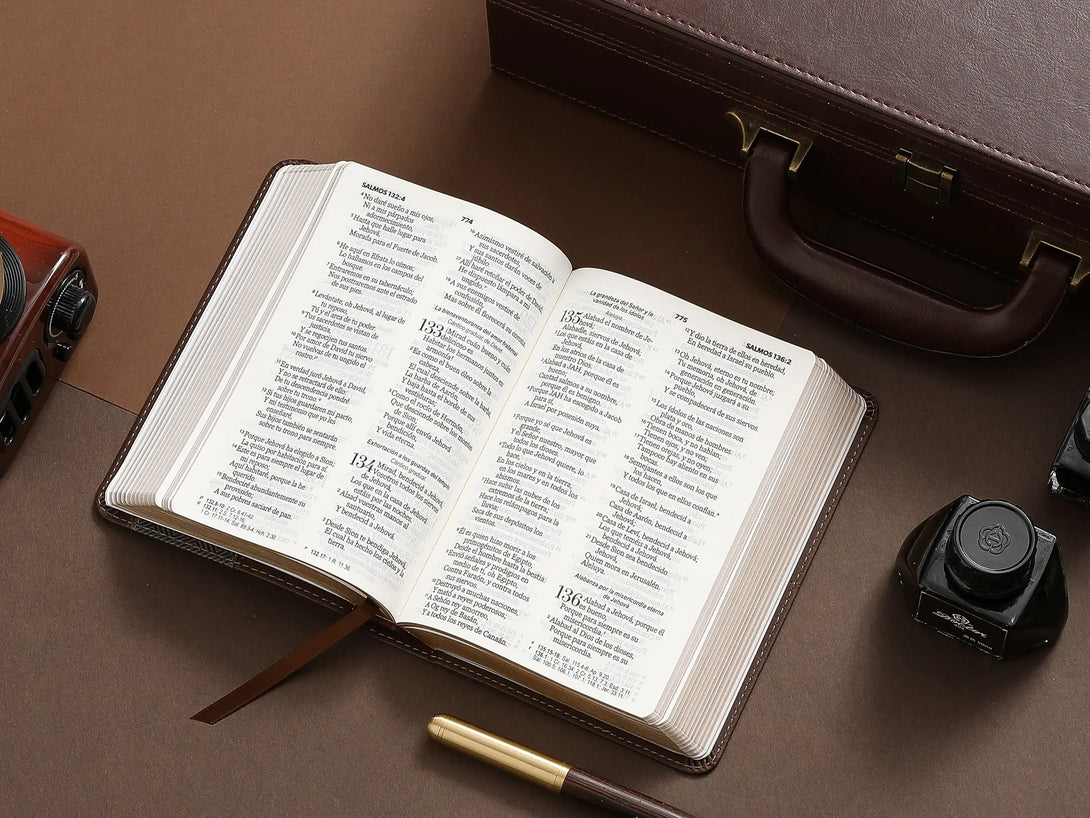 SALMOS 132:4
774
4 No daré sueño a mis ojos,
Ni a mis párpados
adormecimiento,
5 Hasta que halle lugar para
Jehová,
Morada para el Fuerte de Jacob.
6 He aquí en Efrata lo oímos;
Lo hallamos en los campos del
bosque.
7 Entraremos en su tabernáculo;
Nos postraremos ante el estrado
de sus pies.
8 Levántate, oh Jehová, al lugar de
tu reposo,
Tú y el arca de tu poder.
9 Tus sacerdotes se vistan de
justicia,
Y se regocijen tus santos.
10 Por amor de David tu siervo
No vuelvas de tu ungido el
rostro.
11 En verdad juró Jehová a David,
Y no se retractará de ello:
De tu descendencia pondré
sobre tu trono.
12 Si tus hijos guardaren mi pacto,
Y mi testimonio que yo les
enseñaré,
Sus hijos también se sentarán
sobre tu trono para siempre.
13 Porque Jehová ha elegido a Sion;
La quiso por habitación para sí.
14 Este es para siempre el lugar de
mi reposo;
Aquí habitaré, porque la he
querido.
15 Bendeciré abundantemente su
provisión;
A sus pobres saciaré de pan.
16 Asimismo vestiré de salvación a
sus sacerdotes,
Y sus santos darán voces de
júbilo.
17 Allí haré retoñar el poder de David;
He dispuesto lámpara a mi
ungido.
18 A sus enemigos vestiré de
confusión,
Mas sobre él florecerá su corona.
La bienaventuranza del amor fraternal
Cántico gradual; de David.
133 ¡Mirad cuán bueno y cuán
delicioso es
Habitar los hermanos juntos en
2 Es como el buen óleo sobre la
cabeza,
El cual desciende sobre la barba,
La barba de Aarón,
Y baja hasta el borde de sus
3 Como el rocío de Hermón,
Que desciende sobre los montes
de Sion;
Porque allí envía Jehová
bendición,
Y vida eterna.
Exhortación a los guardas del templo
Cántico gradual.
134 Mirad, bendecid a Jehová,
Vosotros todos los siervos
de Jehová,
Los que en la casa de Jehová
estáis por las noches.
2 Alzad vuestras manos al
Y bendecid a Jehová.
3 Desde Sion te bendiga Jehová,
El cual ha hecho los cielos y la
tierra.
775
SALMOS 136:2
La grandeza del Señor y la
vanidad de los ídolos
Aleluya.
135 Alabad el nombre de Je-
hová;
Alabadle, siervos de Jehová;
2 Los que estáis en la casa de
Jehová,
En los atrios de la casa de
3 Alabad a JAH, porque él es
bueno;
Cantad salmos a su nombre,
porque él es benigno.
4 Porque JAH ha escogido a Jacob
para sí,
A Israel por posesión suya.
5 Porque yo sé que Jehová es
grande,
Y el Señor nuestro, mayor que
todos los dioses.
6 Todo lo que Jehová quiere, lo
hace,
En los cielos y en la tierra,
en los mares y en todos los
abismos.
7 Hace subir las nubes de los
extremos de la tierra;
Hace los relámpagos para la
lluvia;
Saca de sus depósitos los
vientos.
8 Él es quien hizo morir a los
primogénitos de Egipto,
Desde el hombre hasta la bestia.
9 Envió señales y prodigios en
medio de ti, oh Egipto,
Contra Faraón, y contra todos
sus siervos.
10 Destruyó a muchas naciones,
Y mató a reyes poderosos;
11 A Sehón rey amorreo,
A Og rey de Basán,
Y a todos los reyes de Canaán.
12 Y dio la tierra de ellos en heredad,
En heredad a Israel su pueblo.
13 Oh Jehová, eterno es tu nombre;
Tu memoria, oh Jehová, de
generación en generación.
14 Porque Jehová juzgará a su
pueblo,
Y se compadecerá de sus siervos.
15 Los ídolos de las naciones son
plata y oro,
Obra de manos de hombres.
16 Tienen boca, y no hablan;
Tienen ojos, y no ven;
17 Tienen orejas, y no oyen;
Tampoco hay aliento en sus
bocas.
18 Semejantes a ellos son los que
los hacen,
Y todos los que en ellos confían.
19 Casa de Israel, bendecid a
Jehová;
Casa de Aarón, bendecid a
Jehová;
20 Casa de Leví, bendecid a Jehová;
Los que teméis a Jehová,
bendecid a Jehová.
21 Desde Sion sea bendecido
Jehová,
Quien mora en Jerusalén.
Aleluya.
Alabanza por la misericordia eterna
de Jehová
136 Alabad a Jehová, porque él
es bueno,
Porque para siempre es su
misericordia.
2 Alabad al Dios de los dioses,
Porque para siempre es su
misericordia.